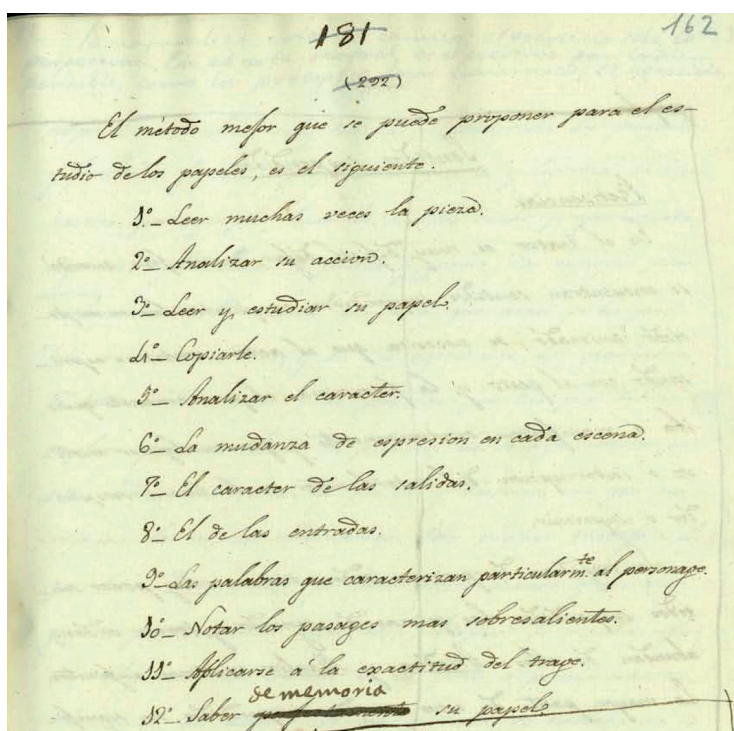 181
162
(292)
El método mejor que se puede proponer para el es-
tudio de los papeles, es el siguiente.
1º_ Leer muchas veces la pieza.
2º_ Analizar su accion.
3º_ Leer y estudiar su papel.
4º_ Copiarle.
5º_ Analizar el caracter.
6º_ La mudanza de espresion en cada escena.
7º_ El caracter de las salidas.
8º_ El de las entradas.
9º_ Las palabras que caracterizan particularmte. al personage.
10º_ Notar los pasages mas sobresalientes.
11º_ Aplicarse á la exactitud del trage.
de memoria
12º_ Saber perfectamente su papel.